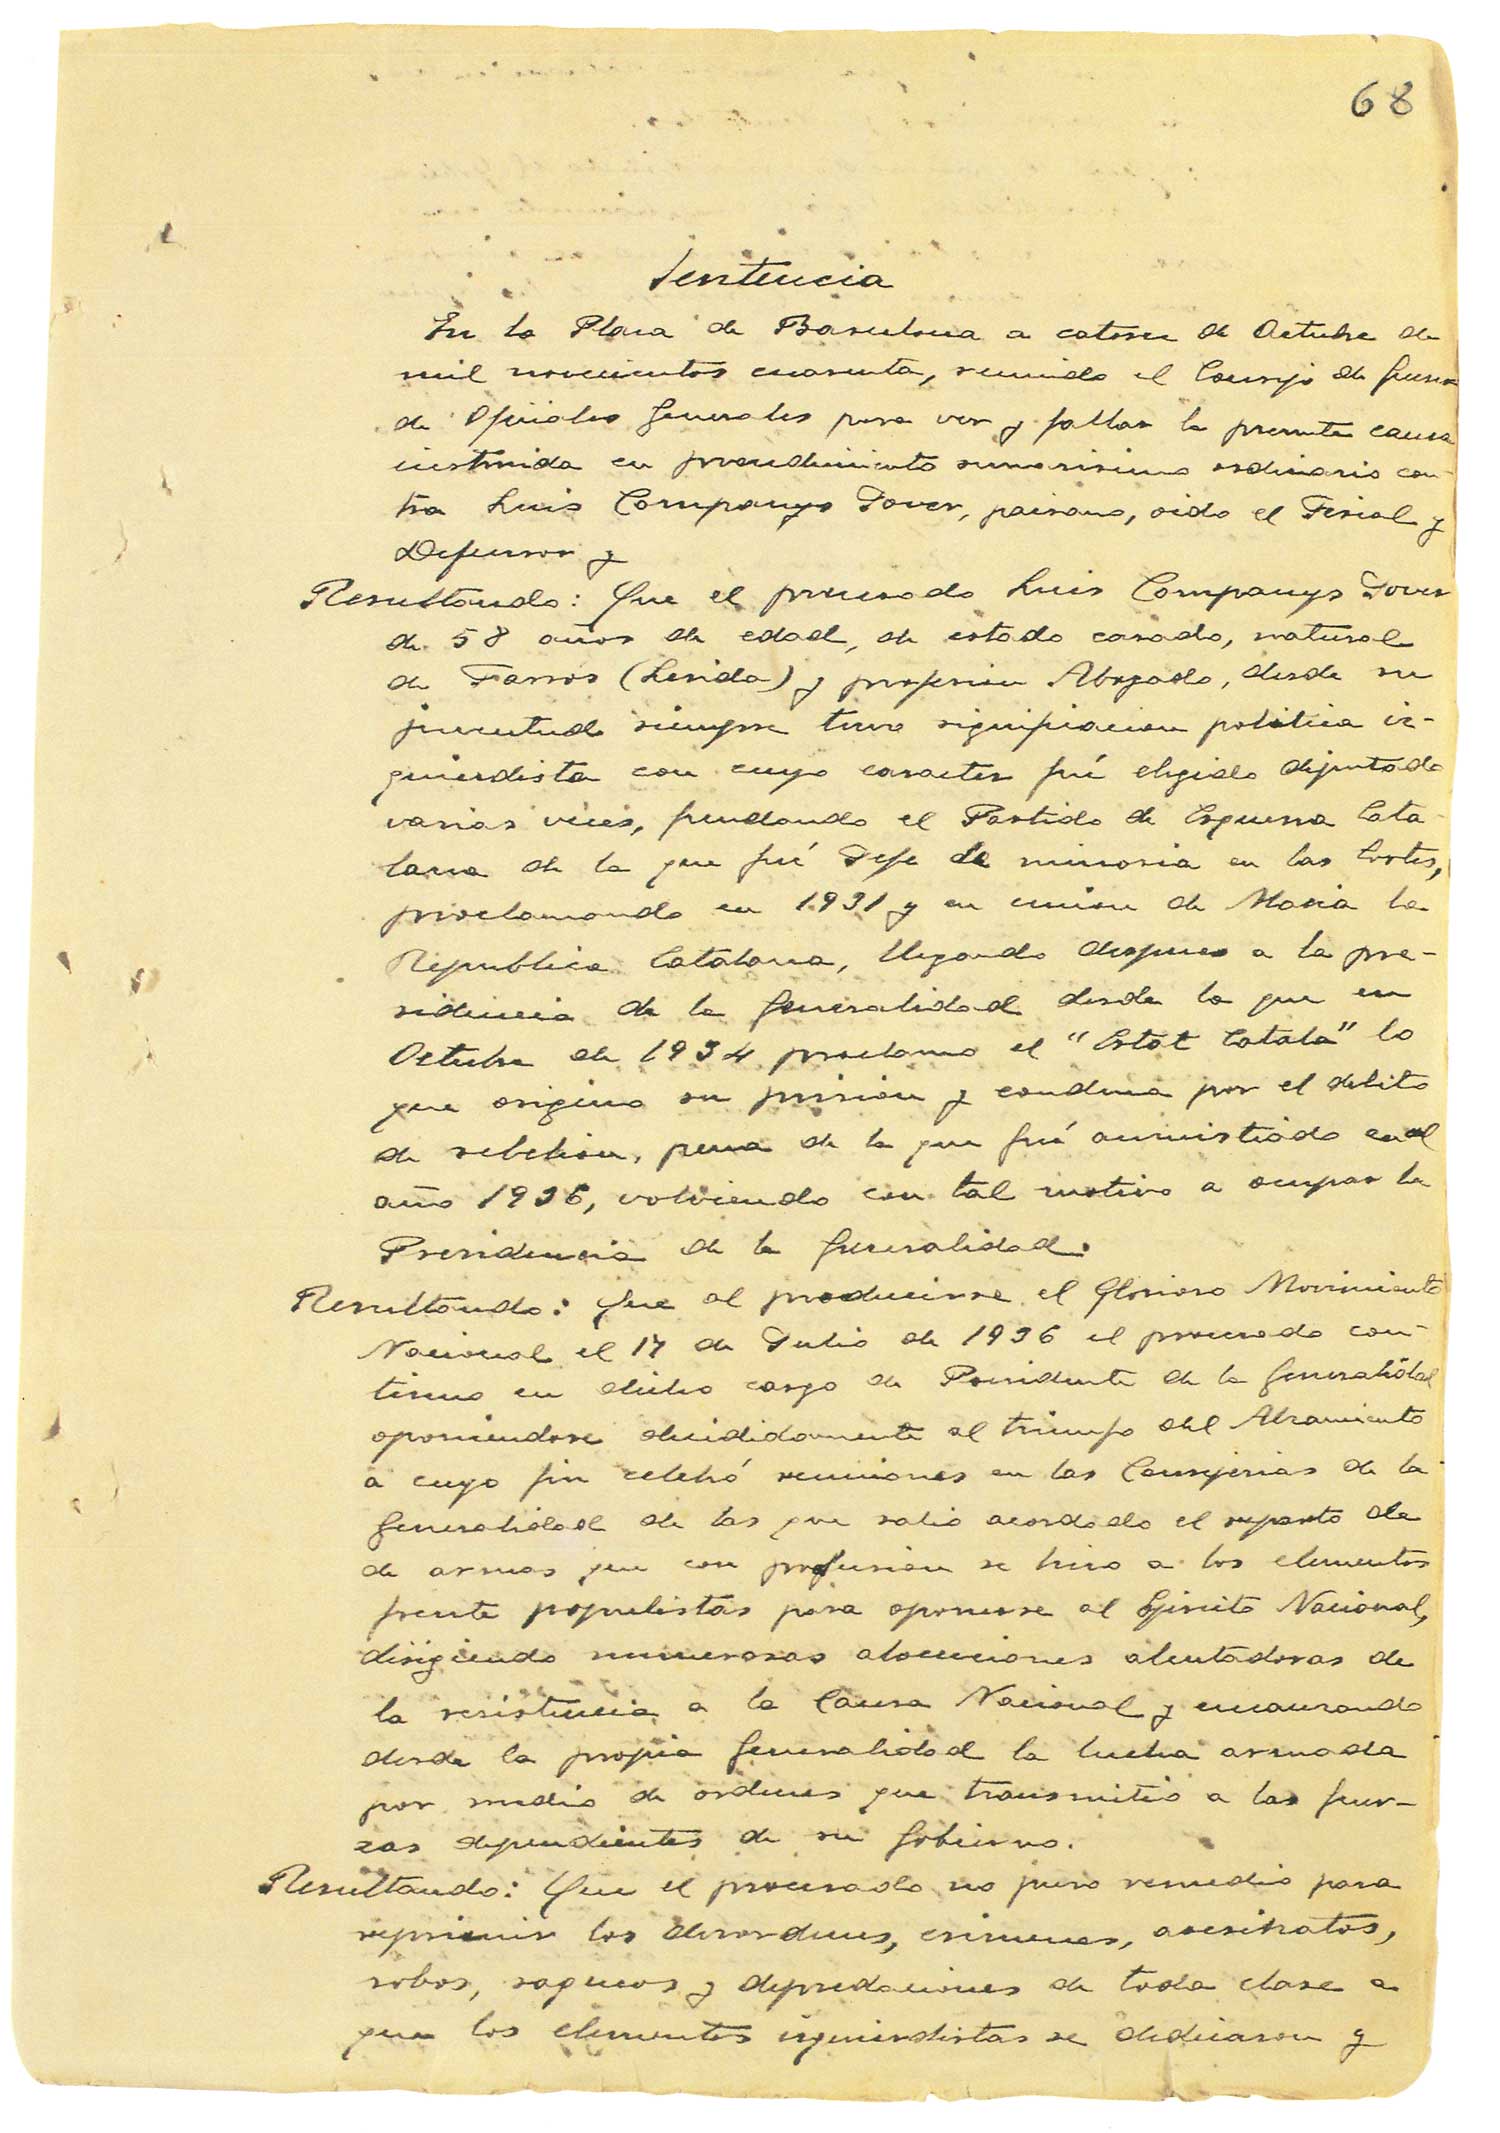 68
Sentencia
En la Plaza de Barcelona a catorce de Octubre de
mil novecientos cuarenta, reunido el Consejo de guerra
de Oficiales Generales para ver y fallar la presente causa
instruida en procedimiento sumarisimo ordinario con-
tra Luis Companys Jover, paisano, oido el Fiscal y
Defensor y
Resultando: Que el procesado Luis Companys Jover
de 58 años de edad, de estado casado, natural
de Tarros (Lerida) y profesion Abogado, desde su
juventud siempre tuvo significacion politica iz-
quierdista con cuyo caracter fué elegido diputado
varias veces, fundando el Partido de Esquerra Cata-
lana de la que fué Jefe de minoria en las Cortes,
proclamando en 1931 y en union de Maciá la
Republica Catalana, llegando despues a la pre-
sidencia de la Generalidad desde la que en
Octubre de 1934 proclamo el "Estat Catalá" lo
que origino su prision y condena por el delito
de rebelion, pena de la que fué amnistiado en el
año 1936, volviendo con tal motivo a ocupar la
Presidencia de la Generalidad.
Resultando: Que al producirse el Glorioso Movimiento
Nacional el 17 de Julio de 1936 el procesado con-
tinuo en dicho cargo de Presidente de la Generalidad
oponiendose decididamente al triunfo del Alzamiento
a cuyo fin celebró reuniones en las Consejerias de la
Generalidad de las que salio acordado el reparto de
de armas que con profusion se hizo a los elementos
frente populistas para oponerse al Ejercito Nacional,
dirigiendo numerosas alocuciones alentadoras de
la resistencia a la Causa Nacional y encauzando
desde la propia Generalidad la lucha armada
por medio de ordenes que transmitio a las fuer-
zas dependientes de su Gobierno.
Resultando: Que el procesado no puso remedio para
reprimir los desordenes, crimenes, asesinatos,
robos, saqueos y depredaciones de toda clase a
que los elementos izquierdistas se dedicaron y